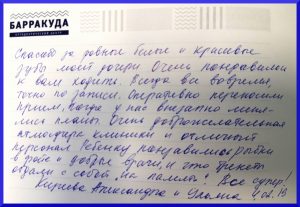 БАРРАКУДА
Спасибо за ровные белые и красивые
зубы моей дочери. Очень понравилось
к вам ходить. Всегда все вовремя,
точно по записи. Оперативно переносили
прием, когда у нас внезапно меня-
лись планы. Очень доброжелательная
атмосфера клиники и отличный
персонал. Ребенку понравились рыбки
в фойе и добрые врачи, и что брекеты
отдали с собой "на память". Все супер!
Александра и Ульяна